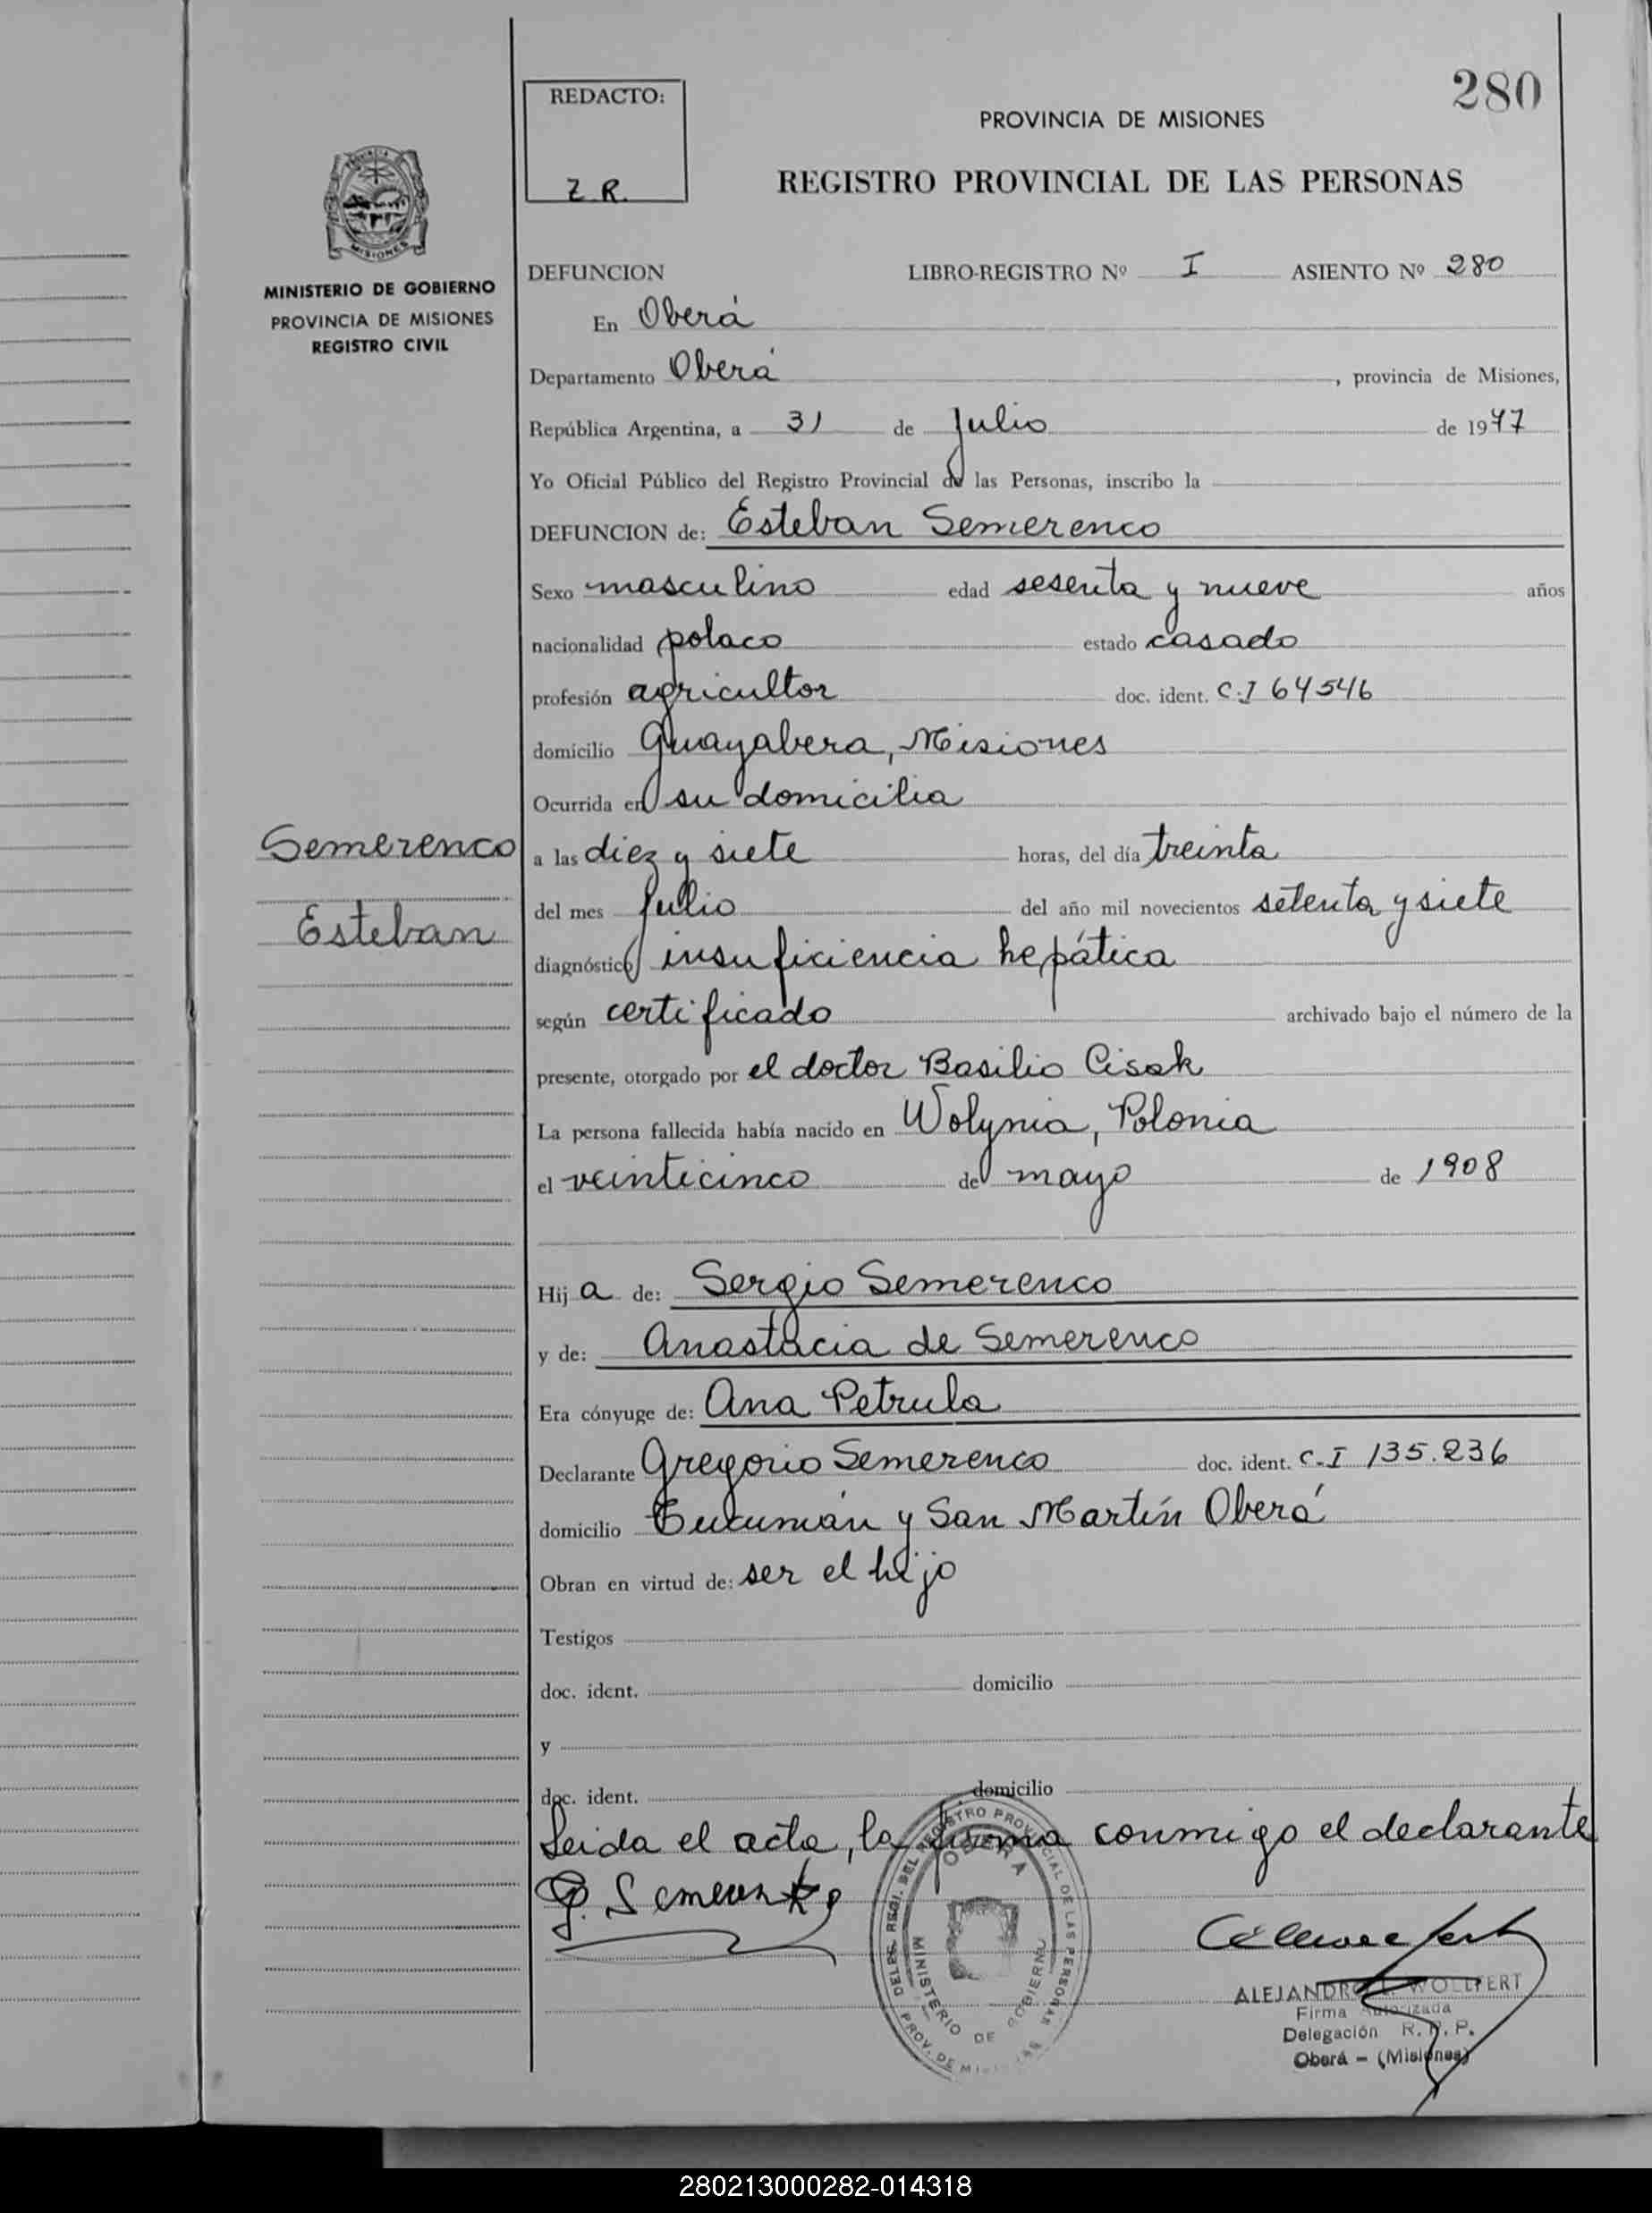 280
REDACTO:
Z.R.
PROVINCIA DE MISIONES
REGISTRO PROVINCIAL DE LAS PERSONAS
MISIONES
MINISTERIO DE GOBIERNO
PROVINCIA DE MISIONES
REGISTRO CIVIL
DEFUNCION LIBRO-REGISTRO Nº I ASIENTO Nº 280
En Oberá
Departamento Oberá, provincia de Misiones,
República Argentina, a 31 de Julio de 1977
Yo Oficial Público del Registro Provincial de las Personas, inscribo la
DEFUNCION de: Esteban Semerenco
Sexo masculino edad sesenta y nueve años
nacionalidad polaco estado casado
profesión agricultor doc. ident. C.I 64546
domicilio Guayabera, Misiones
Ocurrida en su domicilia
Semerenco
Esteban
a las diez y siete horas, del día treinta
del mes Julio del año mil novecientos setenta y siete
diagnóstico insuficiencia hepática
según certificado archivado bajo el número de la
presente, otorgado por el doctor Basilio Cisak
La persona fallecida había nacido en Wolynia, Polonia
el veinticinco de mayo de 1908
Hij a de: Sergio Semerenco
y de: Anastacia de Semerenco
Era cónyuge de: Ana Petrula
Declarante Gregorio Semerenco doc. ident. C.I 135.236
domicilio Tucumán y San Martín Oberá
Obran en virtud de: ser el hijo
Testigos
doc. ident. domicilio
y
doc. ident. domicilio
Leida el acta, la firma conmigo el declarante
DELEG. REGI. DEL REGISTRO PROVINCIAL DE LAS PERSONAS
OBERA
MINISTERIO DE GOBIERNO
PROV. DE MISIONES
ALEJANDRO WOLLFERT
Firma Autorizada
Delegación R. P. P.
Oberá - (Misiones)
280213000282-014318